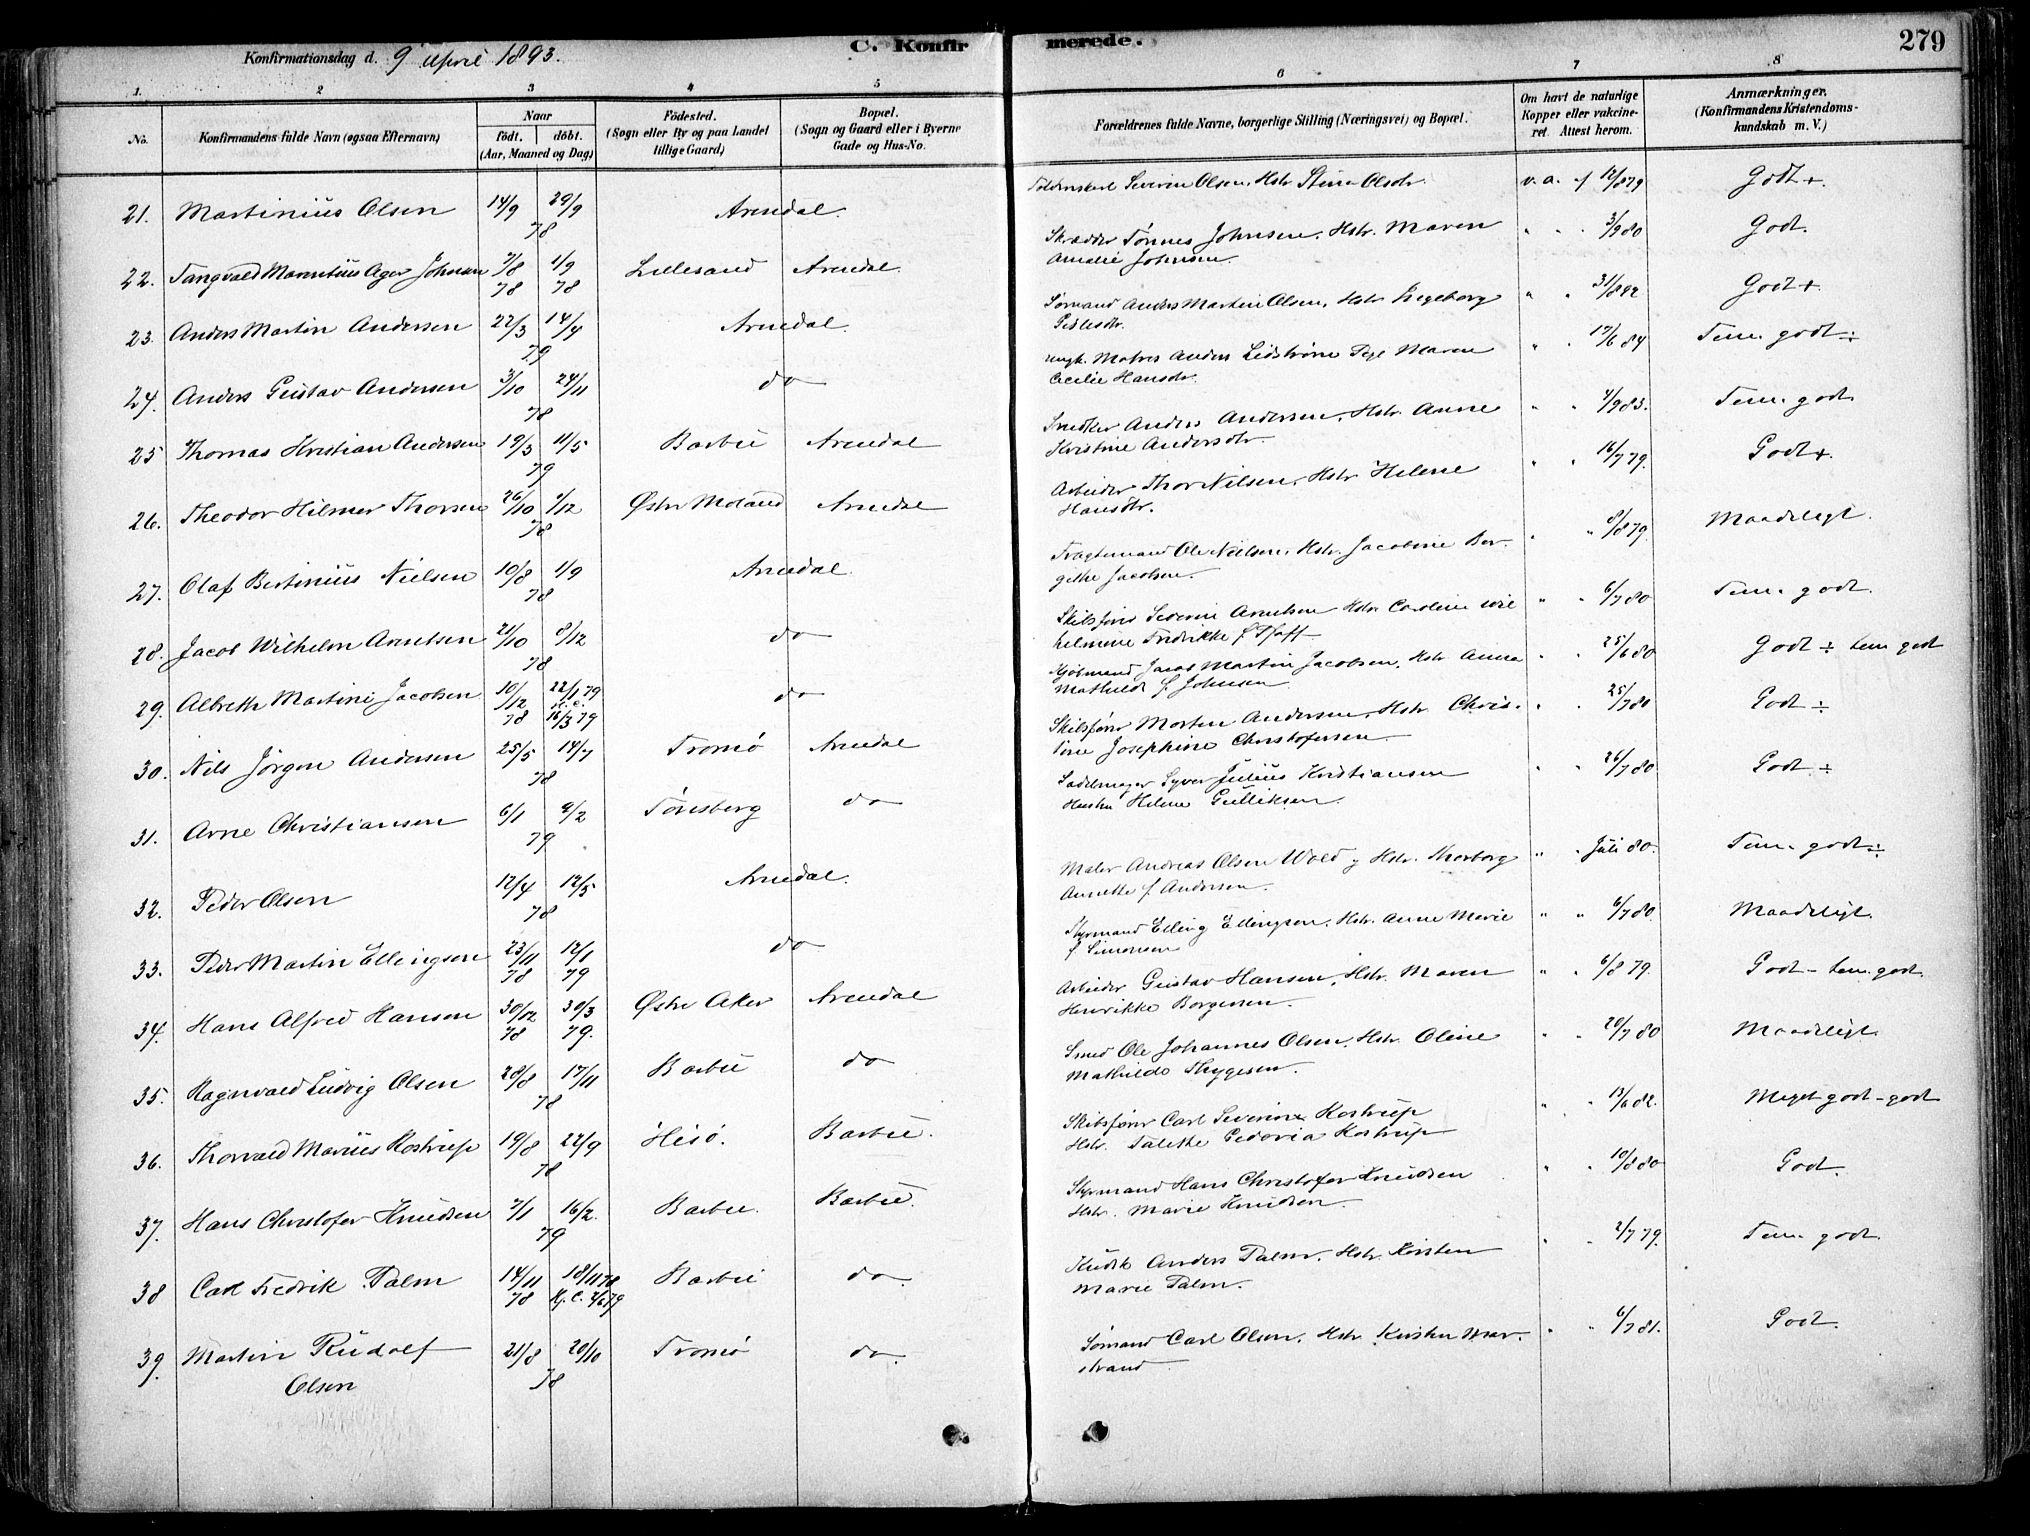 Konfirmationsdag d. 9 April 1893.
C. Konfirmerede.
279
1. 2 3 4 5 6 7 8
No.
Konfirmandens fulde Navn (ogsaa Efternavn)
Naar
födt. döbt.
(Aar, Maaned og Dag)
Födested.
(Sogn eller By og paa Landet
tillige Gaard)
Bopæl.
(Sogn og Gaard eller i Byerne
Gade og Hus-No.
Forældrenes fulde Navne, borgerlige Stilling (Næringsvei) og Bopæl.
Om havt de naturlige
Kopper eller vakcine-
ret. Attest herom.
Anmærkninger.
(Konfirmandens Kristendoms-
kundskab m. V.)
21. Martinius Olsen 14/9 29/9 78 Arendal.
Severin Olsen, Hstr. Stina Olsdtr. v. a. f 12/8 79 Godt +.
22. Tangvald Marentius Ager Johnsen 7/8 78 1/9 78 Lillesand Arendal.
Skrædder Tønnes Johnsen, Hstr. Maren
Amalie Johnsen. " " 3/9 80 Godt.
23. Anders Martin Andersen 22/3 14/4 79 Arendal.
Sømand Anders Martin Olsen, Hstr. Ingeborg
Pedersdtr. " " 31/8 92 Godt +
24. Anders Gustav Andersen 3/10 24/11 78 do
ungk. Matros Anders Lidstrøm Pige Maren
Cecilie Hansdtr. " " 17/6 84 Tem. godt ÷
25 Thomas Kristian Andersen 19/3 11/5 79 Barbu Arendal
Snedker Anders Andersen, Hstr. Anne
Kristine Andersdtr. " " 4/9 83. Tem. godt
26. Theodor Hilmer Thorsen 26/10 1/12 78 Østre Moland Arendal
Arbeider Thor Nilsen, Hstr. Helene
Hansdtr. " " 16/7 79. Godt +.
27. Olaf Bertinius Nielsen 10/8 1/9 78 Arendal.
Fragtemand Ole Nielsen, Hstr. Jacobine Ber-
gethe Jacobsen. " " 8/8 79. Maadeligt.
28. Jacob Wilhelm Arntsen 21/10 8/12 78 do
Skibsfører Severin Arntsen Hstr. Caroline Wil
helmine Fredrikke f. Pfaff " " 6/7 80 Tem. godt.
29. Albreth Martin Jacobsen 10/12 78 22/1 79 K. C. 16/3 79 do
Kjøbmand Jacob Martin Jacobsen, Hstr. Anna
Mathilde f. Johnsen " " 25/6 80 Godt ÷ tem godt
30. Nils Jörgen Andersen 25/5 14/7 78 Tromö Arendal
Skibsfører Morten Andersen, Hstr. Chris-
tine Josephine Christofersen " " 25/7 80 Godt ÷
31. Arne Christiansen 6/1 9/2 79 Tönsberg do
Sadelmager Syver Julius Kristiansen
Hustru Helene Gulliksen. " " 26/7 80. Godt ÷
32. Peder Olsen 12/4 12/5 78 Arendal.
Maler Andreas Olsen Wold og Hstr. Thorborg
Annette f. Andersen. " " Juli 80. Tem. godt ÷
33. Peder Martin Ellingsen 23/11 78 12/1 79 do
Styrmand Elling Ellingsen, Hstr. Anne Marie
f. Simonsen " " 6/7 80. Maadeligt.
34. Hans Alfred Hansen 30/12 78 30/3 79. Østre Aker Arendal
Arbeider Gustav Hansen, Hstr. Maren
Henrikke Borgersen. " " 6/8 79. Godt - tem. godt.
35. Ragnvald Ludvig Olsen 28/8 17/11 78 Barbu do
Smed Ole Johannes Olsen, Hstr. Oline
Mathilde Thygesen. " " 20/7 80 Maadeligt
36. Thorvald Marius Kostrup 19/8 22/9 78 Hisö. Barbu.
Skibsfører Carl Severin Kostrup
Hstr. Talette Pedovia Kostrup " " 13/6 82. Meget godt - godt
37. Hans Christofer Knudsen 7/1 16/2. 79 Barbu. Barbu.
Styrmand Hans Christofer Knudsen
Hstr. Marie Knudsen. " " 10/8 80 Godt.
38 Carl Fredrik Palm 14/11 78 18/11 78 Kj. C. 2/6 79 Barbu do.
Kudsk Anders Palm, Hstr. Kirsten
Marie Palm. " " 2/7 79. Tem. godt.
39. Martin Rudolf 21/8 20/10 78 Tromö do.
Olsen
Sømand Carl Olsen, Hstr. Kirsten Mar-
strand " " 6/7 81. Godt.